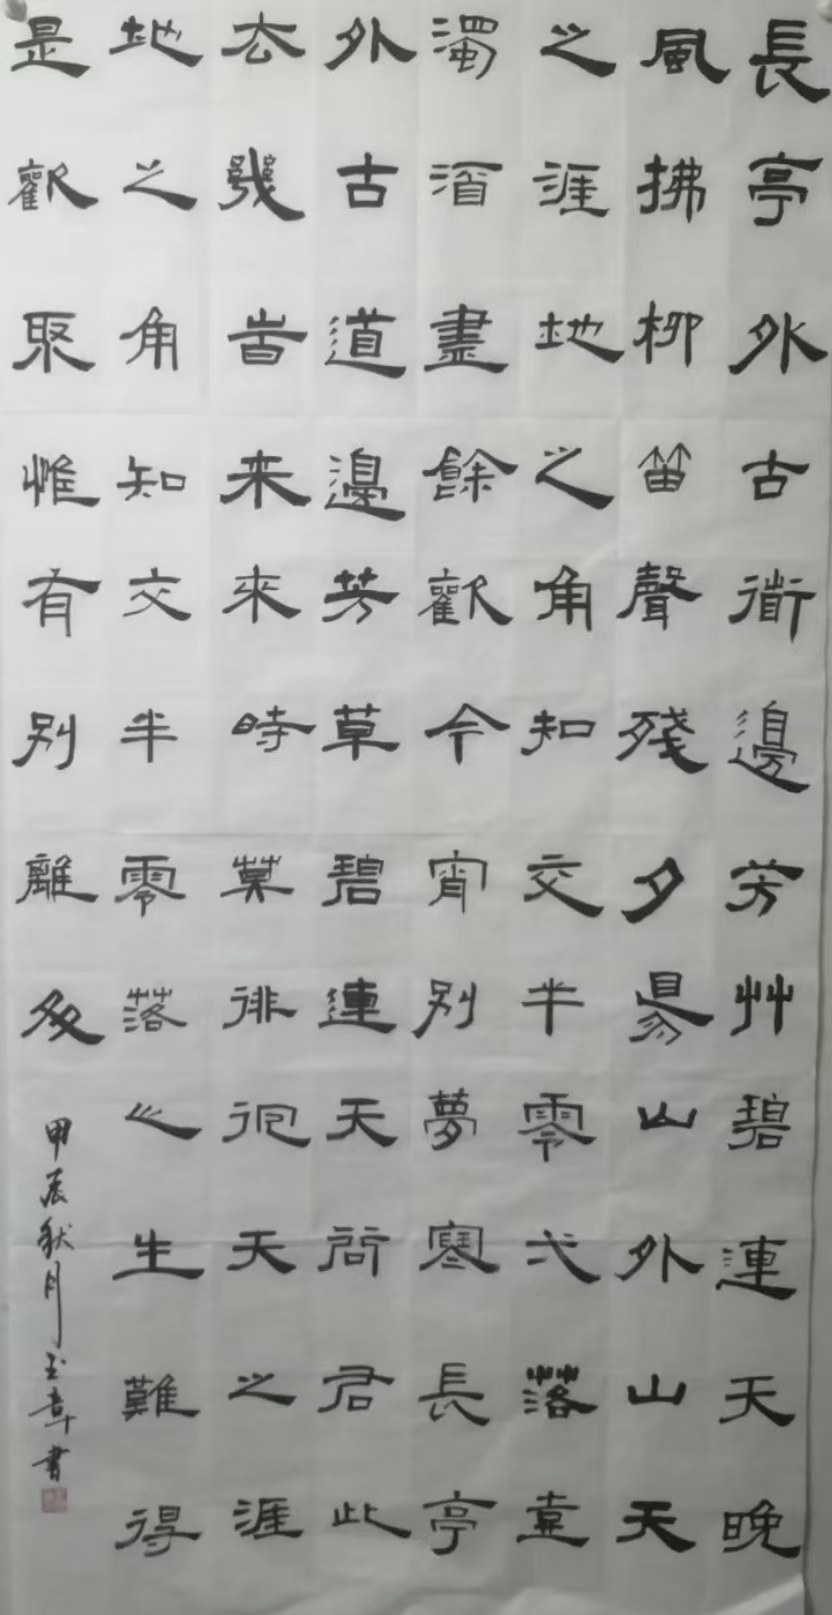 長亭外古衜邊芳艸碧連天晚
風拂柳笛聲殘夕昜山外山天
之涯地之角知交半零弌落壺
濁酒盡餘歡今宵別夢寒長亭
外古道邊芳草碧連天問君此
去幾旹来來時莫徘徊天之涯
地之角知交半零落心生難得
是歡聚惟有別離多
甲辰秋月玉章書